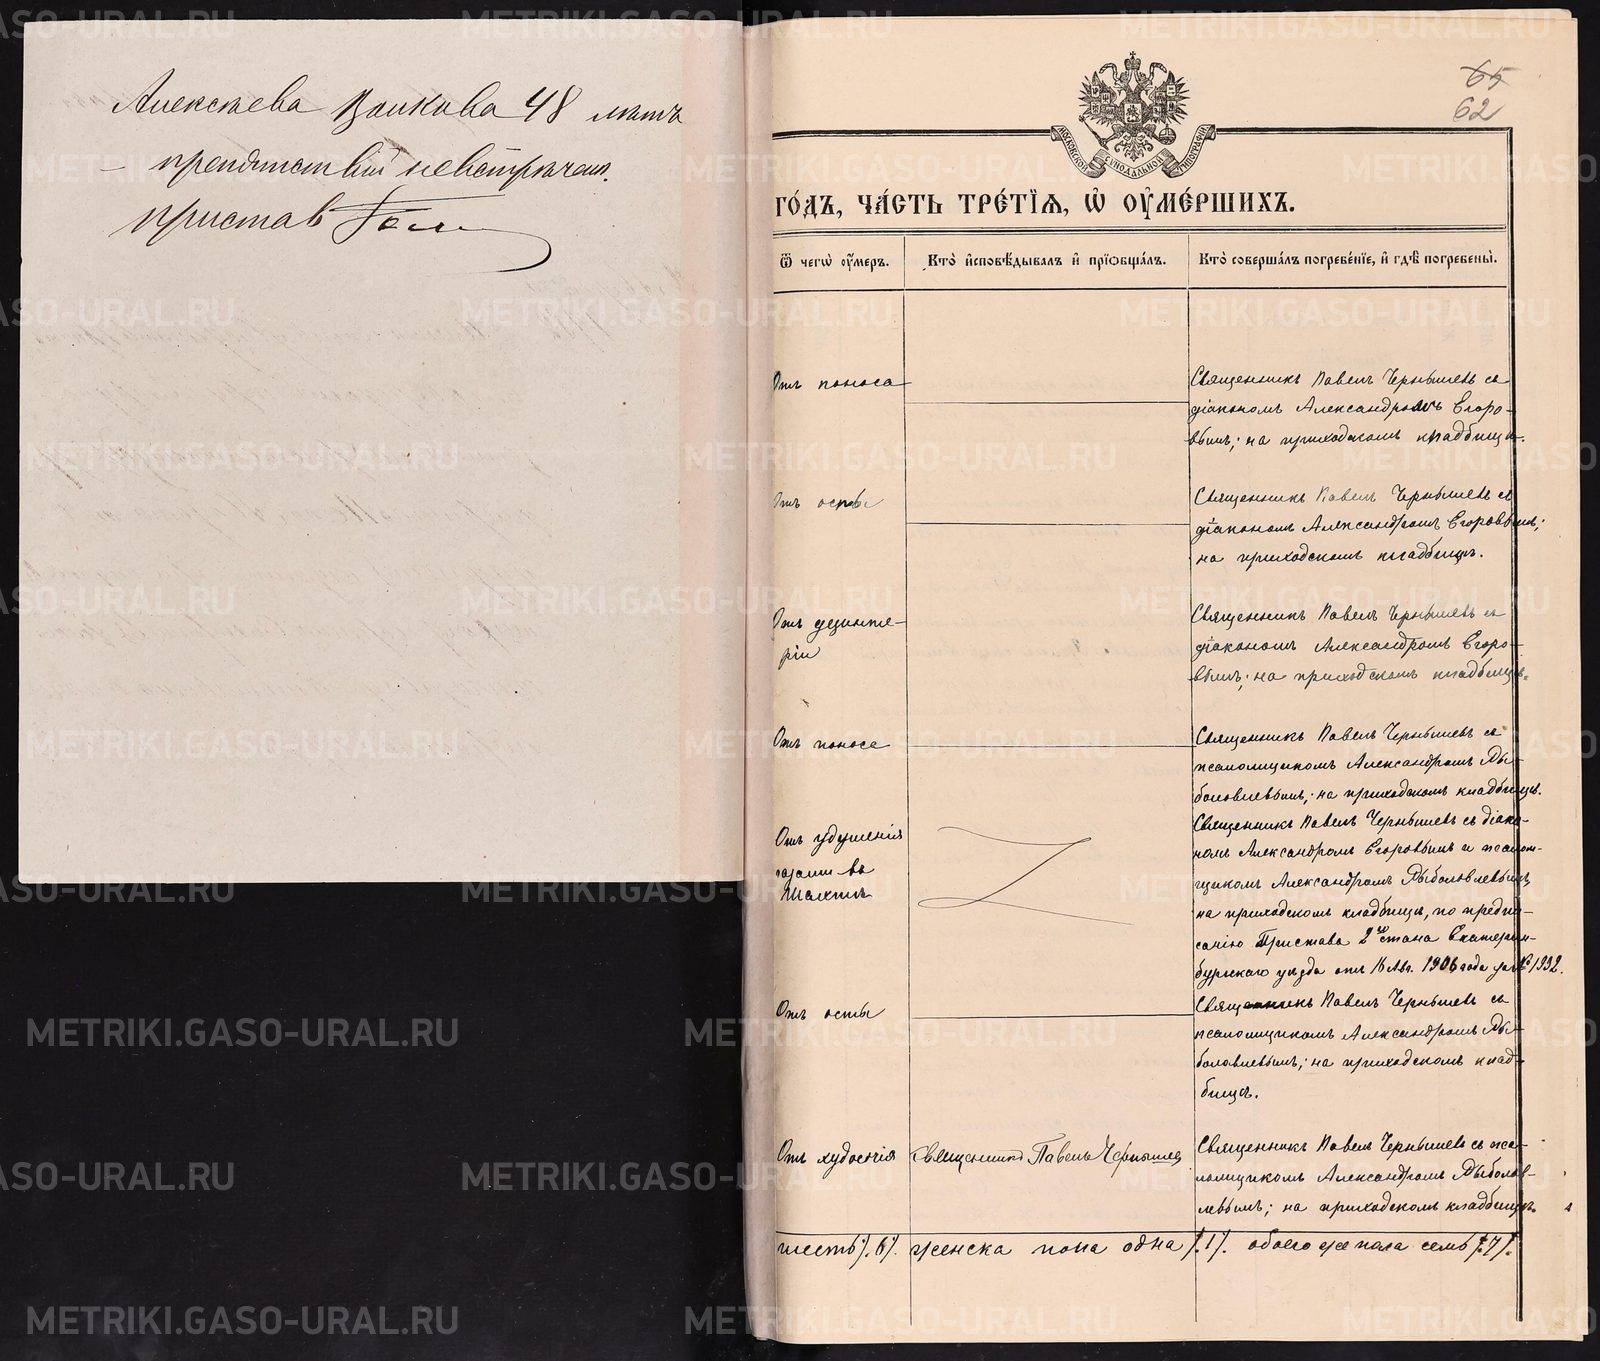 Алексѣева Волкова 48 лѣтъ
– препятствій невстрѣчено.
приставъ
65
62
МОСКОВСКОЙ СѴНОДАЛЬНОЙ ТИПОГРАФІИ
го́дъ, ча́сть тре́тїѧ, ѡ҆ ᲂу҆ме́ршихъ.
Ѿ чегѡ̀ ᲂу҆́меръ.
Кто̀ и҆сповѣ́дывалъ и҆ прїѻбща́лъ.
Кто̀ соверша́лъ погребе́нїе, и҆ гдѣ̀ погребены̀.
Отъ поноса
Священникъ Павелъ Чернышевъ съ
діакономъ Александромъ Егоро-
вымъ; на приходскомъ кладбищѣ.
Отъ оспы
Священникъ Павелъ Чернышевъ съ
діакономъ Александромъ Егоровымъ;
на приходскомъ кладбищѣ.
Отъ дезинте-
ріи
Священникъ Павелъ Чернышевъ съ
діакономъ Александромъ Егоро-
вымъ; на приходскомъ кладбищѣ.
Отъ поноса
Священникъ Павелъ Чернышевъ съ
псаломщикомъ Александромъ Ры-
боловлевымъ; на приходскомъ кладбищѣ.
Отъ удушенія
газами въ
Шахтѣ
Священникъ Павелъ Чернышевъ съ діако-
номъ Александромъ Егоровымъ и псалом-
щикомъ Александромъ Рыболовлевымъ
на приходскомъ кладбищѣ, по предпи-
санію Пристава 2го стана Екатерин-
бургскаго уѣзда отъ 16 Авг. 1906 года за № 1992.
Отъ оспы
Священникъ Павелъ Чернышевъ съ
псаломщикомъ Александромъ Ры-
боловлевымъ; на приходскомъ клад-
бищѣ.
Отъ худосочія
Священникъ Павелъ Чернышев
Священникъ Павелъ Чернышевъ съ пса-
ломщикомъ Александромъ Рыболов-
левымъ; на приходскомъ кладбищѣ.
шесть /.6/. женска пола одна /.1/. обоего же пола семь /.7/.
METRIKI.GASO-URAL.RU